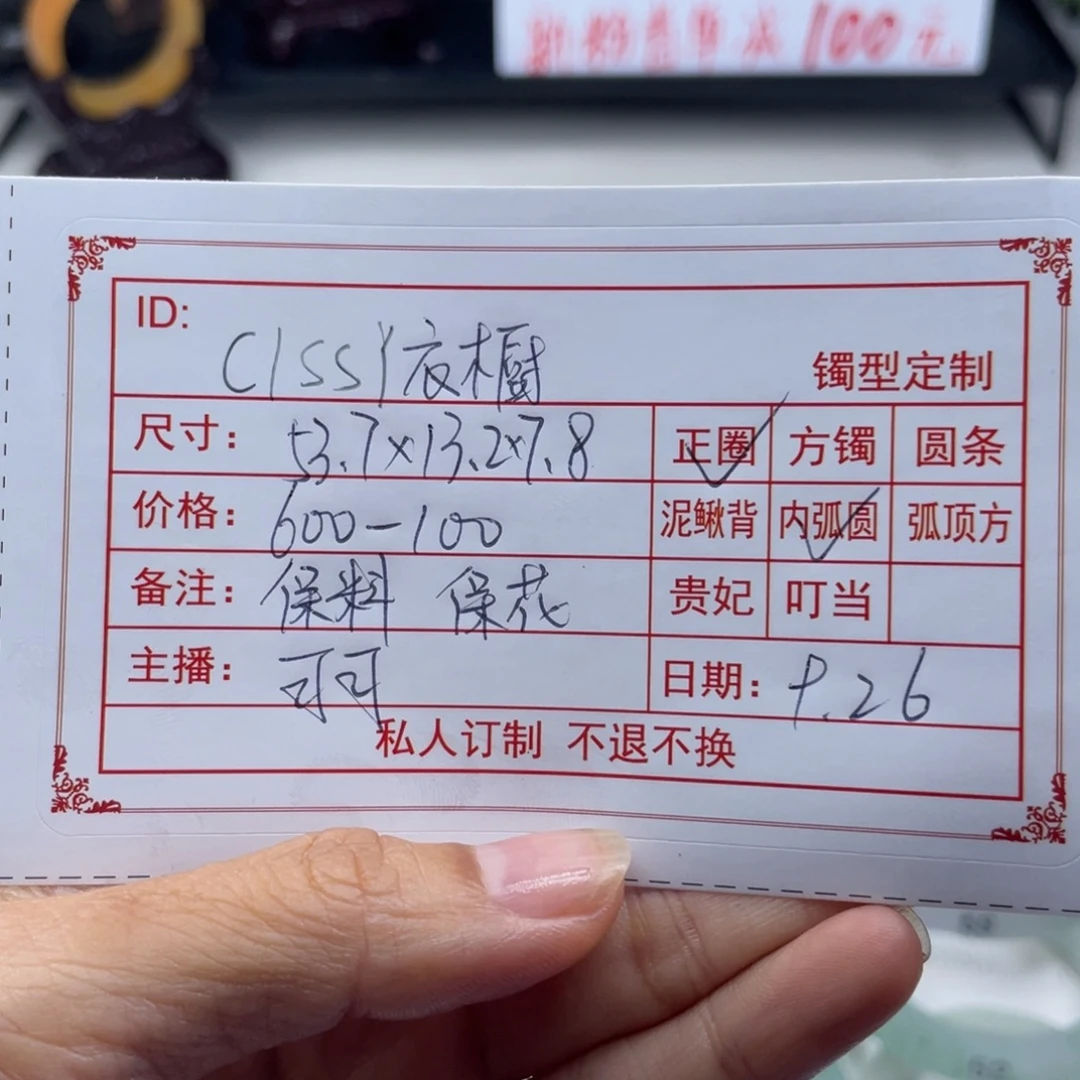 100元
ID: C1SSY衣橱
镯型定制
尺寸: 53.7×13.2×7.8 正圈 方镯 圆条
价格: 600-100 泥鳅背 内弧圆 弧顶方
备注: 保料 保花 贵妃 叮当
主播: 可可 日期: 9.26
私人订制 不退不换